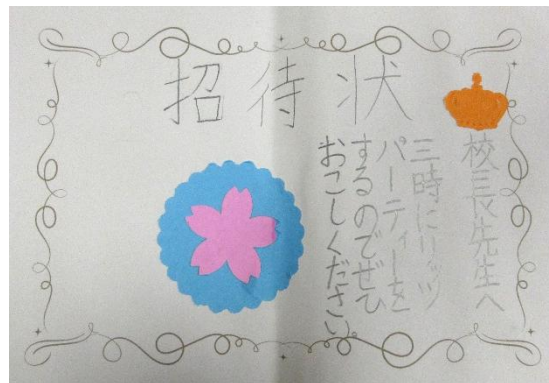 招待状
校長先生へ
三時にリッツ
パーティーを
するのでぜひ
おこしください